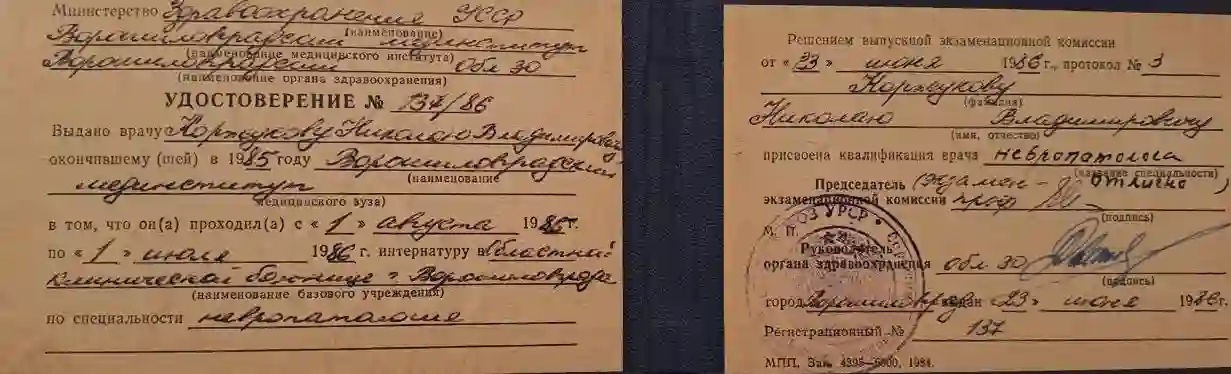 Министерство Здравоохранения УССР
Ворошиловградский мединститут
(наименование)
(наименование медицинского института)
Ворошиловградский обл ЗО
(наименование органа здравоохранения)
УДОСТОВЕРЕНИЕ № 137/86
Выдано врачу Коржукову Николаю Владимировичу
окончившему (шей) в 1985 году Ворошиловградский
(наименование
мединститут
медицинского вуза)
в том, что он(а) проходил(а) с « 1 » августа 1985 г.
по « 1 » июля 1986 г. интернатуру в областной
клинической больнице г. Ворошиловграда
(наименование базового учреждения)
по специальности невропатология
Решением выпускной экзаменационной комиссии
от « 23 » июня 1986 г., протокол № 3
Коржукову
(фамилия)
Николаю Владимировичу
(имя, отчество)
присвоена квалификация врача невропатолога
(название специальности)
Председатель (Экзамен - отлично)
экзаменационной комиссии проф
(подпись)
М. П.
Руководитель
органа здравоохранения обл. ЗО
(подпись)
город Ворошиловград выдан « 23 » июня 1986 г.
Регистрационный № 137
МПП, Зак. 4395—6000, 1984.